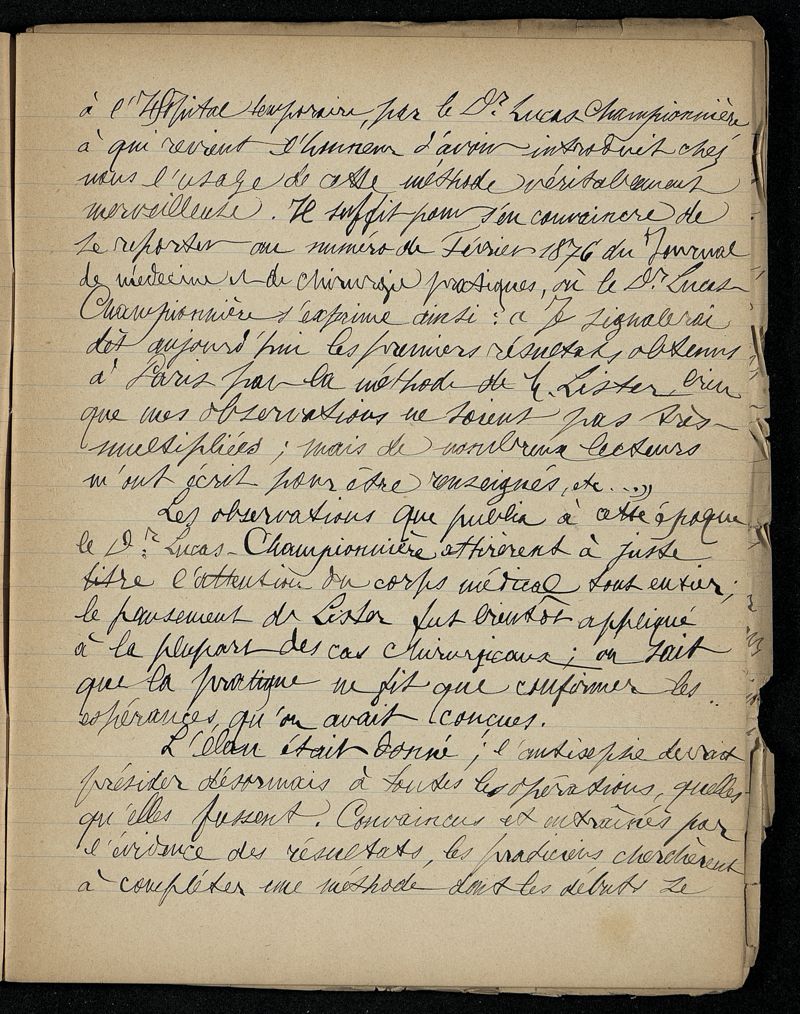 à l'Hôpital temporaire, par le Dr. Lucas Championnière
à qui revient l'honneur d'avoir introduit chez
nous l'usage de cette méthode véritablement
merveilleuse. Il suffit pour s'en convaincre de
se reporter au numéro de Février 1876 du Journal
de médecine et de chirurgie pratiques, où le Dr. Lucas-
Championnière s'exprime ainsi : « Je signalerai
dès aujourd'hui les premiers résultats obtenus
à Paris par la méthode de M. Lister, bien
que mes observations ne soient pas très-
multipliées ; mais de nombreux lecteurs
m'ont écrit pour être renseignés, etc... »
Les observations que publia à cette époque
le Dr. Lucas-Championnière attirèrent à juste
titre l'attention du corps médical tout entier ;
le pansement de Lister fut bientôt appliqué
à la plupart des cas chirurgicaux ; on sait
que la pratique ne fit que confirmer les
espérances qu'on avait conçues.
L'élan était donné ; l'antisepsie devait
présider désormais à toutes les opérations, quelles
qu'elles fussent. Convaincus et entraînés par
l'évidence des résultats, les praticiens cherchèrent
à compléter une méthode dont les débuts se